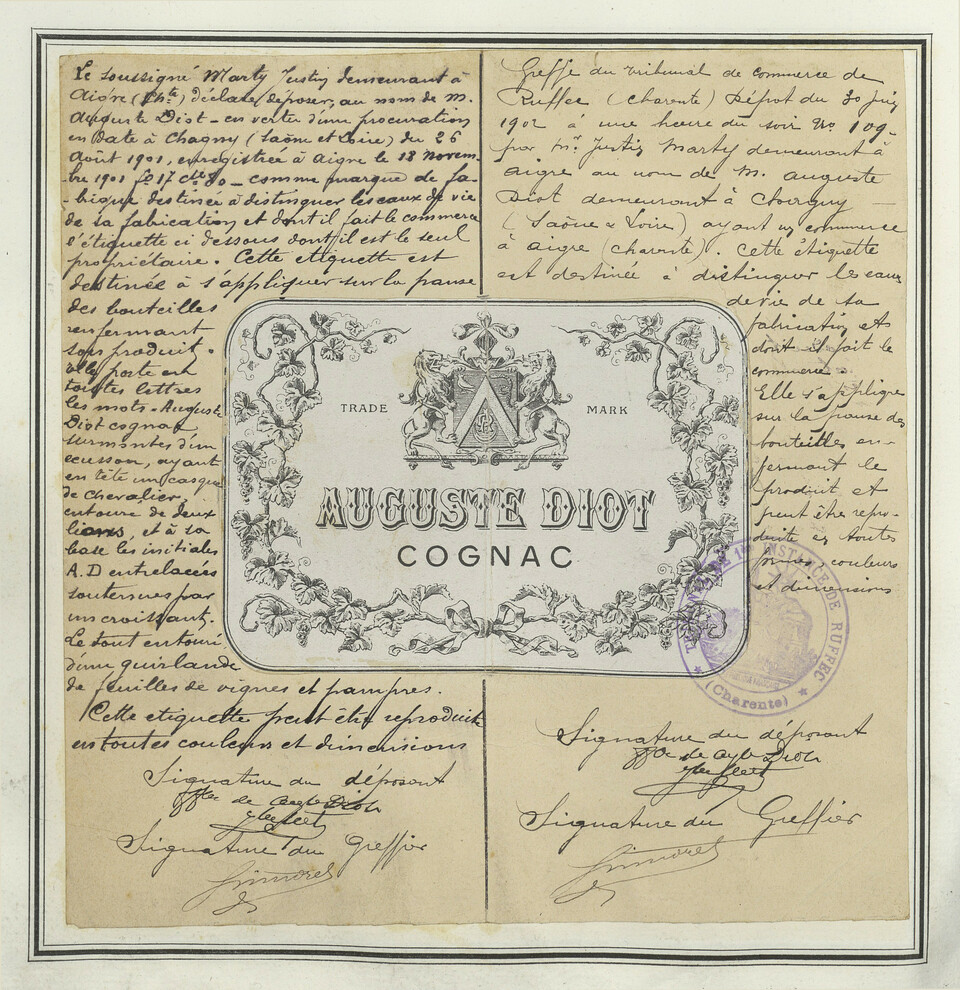 Le soussigné Marty Justin demeurant à
Aigre (Chte) déclare déposer, au nom de M.
Auguste Diot - en vertu d'une procuration
en Date à Chagny (Saône et Loire) du 26
Août 1901, enregistrée à Aigre le 18 novem-
-bre 1901 fo 17 cse 80 - comme marque de fa-
-brique destinée à distinguer les eaux de vie
de sa fabrication et dont il fait le commerce
l'étiquette ci dessous dont il est le seul
propriétaire. Cette etiquette est
destinée à s'appliquer sur la panse
des bouteilles
renfermant
son produit.
Elle porte en
toutes lettres
les mots - Auguste
Diot cognac
surmontés d'un
ecusson, ayant
en tête un casque
de chevalier,
entouré de deux
lions, et à sa
base les initiales
A.D entrelacées
soutenues par
un croissant.
Le tout entouré
d'une guirlande
de feuilles de vignes et pampres.
Cette etiquette peut être reproduite
en toutes couleurs et dimensions
Signature du déposant
de Aug Diot
Signature du Greffier
Greffe du Tribunal de commerce de
Ruffec (Charente) Dépot du 30 juin
1902 à une heure du soir No 109
par Mr. Justin Marty demeurant à
aigre au nom de M. Auguste
Diot demeurant à Chagny
(Saône & Loire) ayant un commerce
à aigre (charente). Cette étiquette
est destinée à distinguer les eaux
de vie de sa
fabrication et
dont il fait le
commerce.
Elle s'applique
sur la panse des
bouteilles en-
fermant le
produit et
peut être repro-
duite en toutes
couleurs
et dimensions
Signature du déposant
de Aug Diot
Signature du Greffier
TRADE MARK
AUGUSTE DIOT
COGNAC
TRIBUNAL DE 1re INSTANCE DE RUFFEC
(Charente)